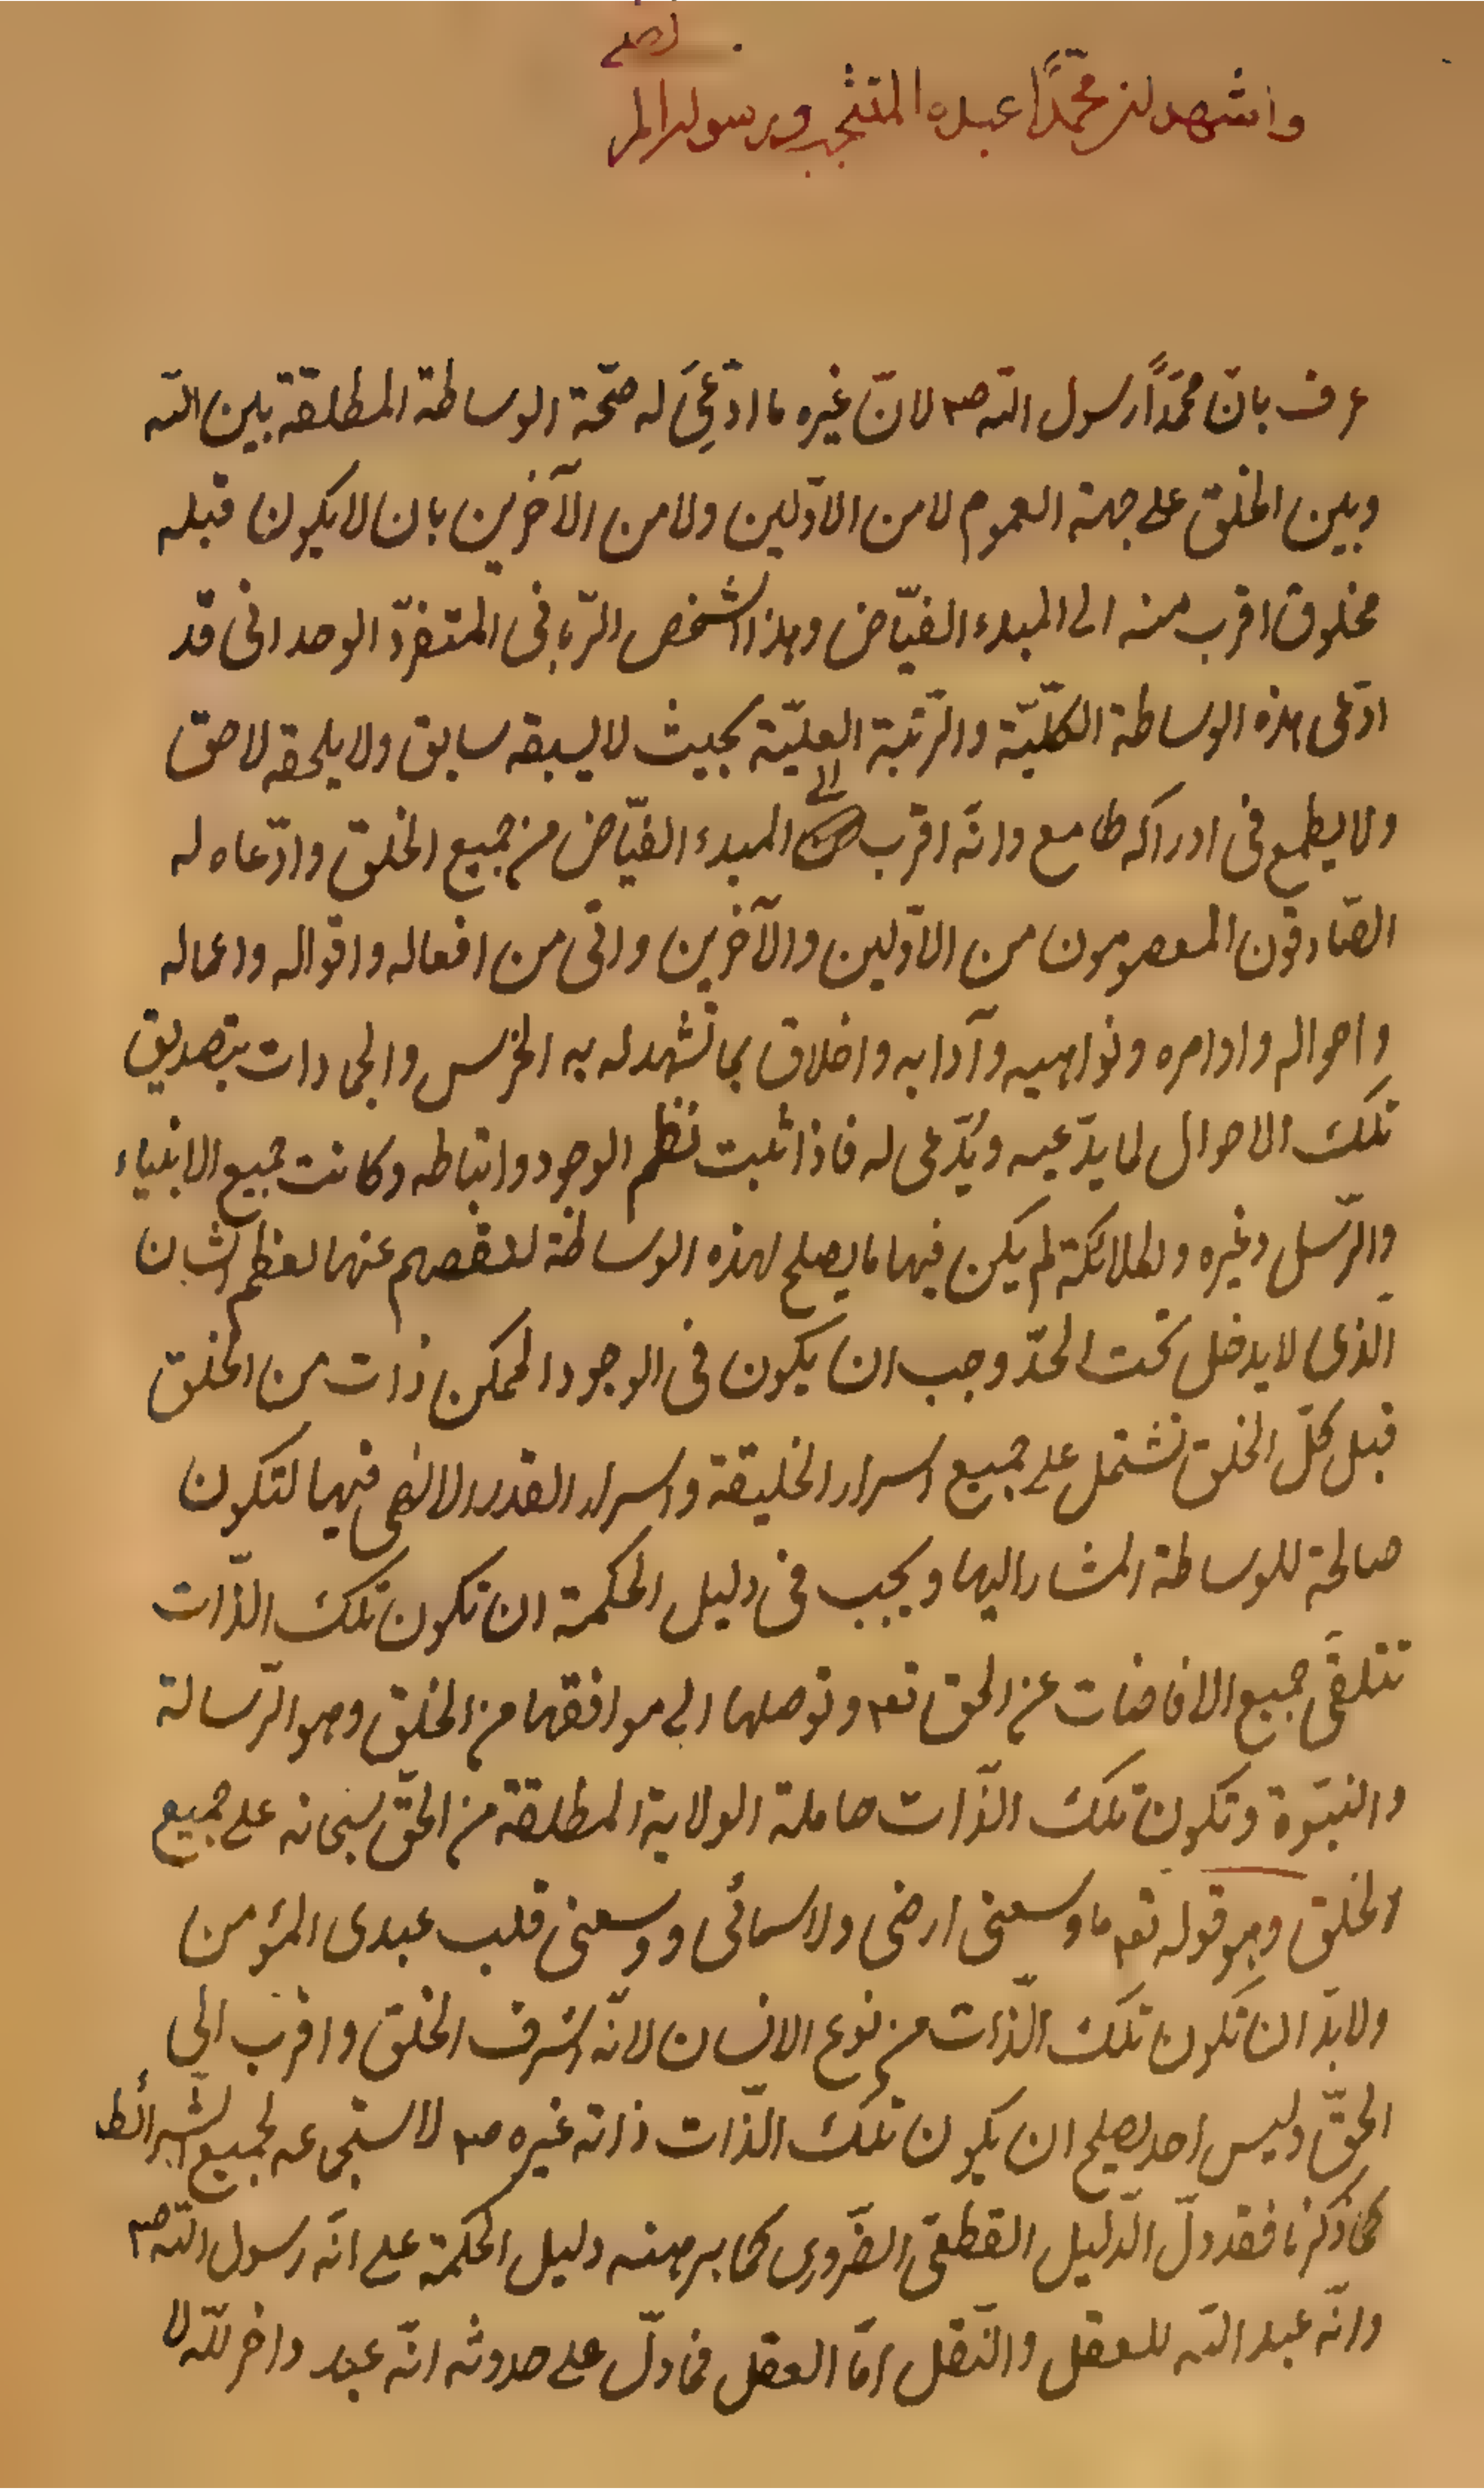 واشهد ان محمّدًا عبده المنتجب ورسوله المر
تضى
عرف بانّ محمّداً رسول اللّه ص لانّ غيره ما ادّعِيَ له صحّة الوساطة المطلقة بين اللّه
وبين الخلق على جهة العموم لا من الاوّلين ولا من الآخرين بان لا يكون قبله
مخلوق اقرب منه الى المبدء الفيّاض وهذا الشخص الرّبانى المتفرّد الوحدانى قد
ادّعى هذه الوساطة الكلّيّة والرّتبة العليّة بحيث لا يسبقه سابق ولا يلحقه لاحق
ولا يطمع فى ادراكه طامع وانّه اقرب الى المبدء الفيّاض من جميع الخلق وادّعاه له
الصّادقون المعصومون من الاوّلين والآخرين واتى من افعاله واقواله واعماله
واحواله واوامره ونواهيه وآدابه واخلاق بما تشهد له به الخرس والجمادات بتصديق
تلك الاحوال لما يدّعيه ويُدّعى له فاذا ثبت نظم الوجود وارتباطه وكانت جميع الانبياء
والرّسل وغيره والملائكة لم يكن فيها ما يصلح لهذه الوساطة لنقصهم عنها لعظم الشان
الّذى لا يدخل تحت الحدّ وجب ان يكون فى الوجود الممكن ذات من الخلق
قبل كلّ الخلق تشتمل على جميع اسرار الخليقة واسرار القدر الالٰهى فيها لتكون
صالحة للوساطة المشار اليها ويجب فى دليل الحكمة ان تكون تلك الذّات
تتلقّى جميع الافاضات عن الحق تعم وتوصلها الى موافقها من الخلق وهو الرّسالة
والنبوّة وتكون تلك الذّات حاملة الولاية المطلقة من الحقّ سبحانه على جميع
الخلق وهو قوله تعم ما وسعنى ارضى ولا سمائى ووسعنى قلب عبدى المؤمن
ولابدّ ان تكون تلك الذّات من نوع الانسان لانّه اشرف الخلق واقرب الى
الحقّ وليس احد يصلح ان يكون تلك الذّات ذاته غيره ص لاستجماعه لجميع الشّرائط
كما ذكرنا فقد دلّ الدّليل القطعىّ الضّرورى كما برهنه دليل الحكمة على انّه رسول اللّه ص
وانّه عبد اللّه للعقل والنّقل امّا العقل فما دلّ على حدوثه انّه عبد داخر للّه لا